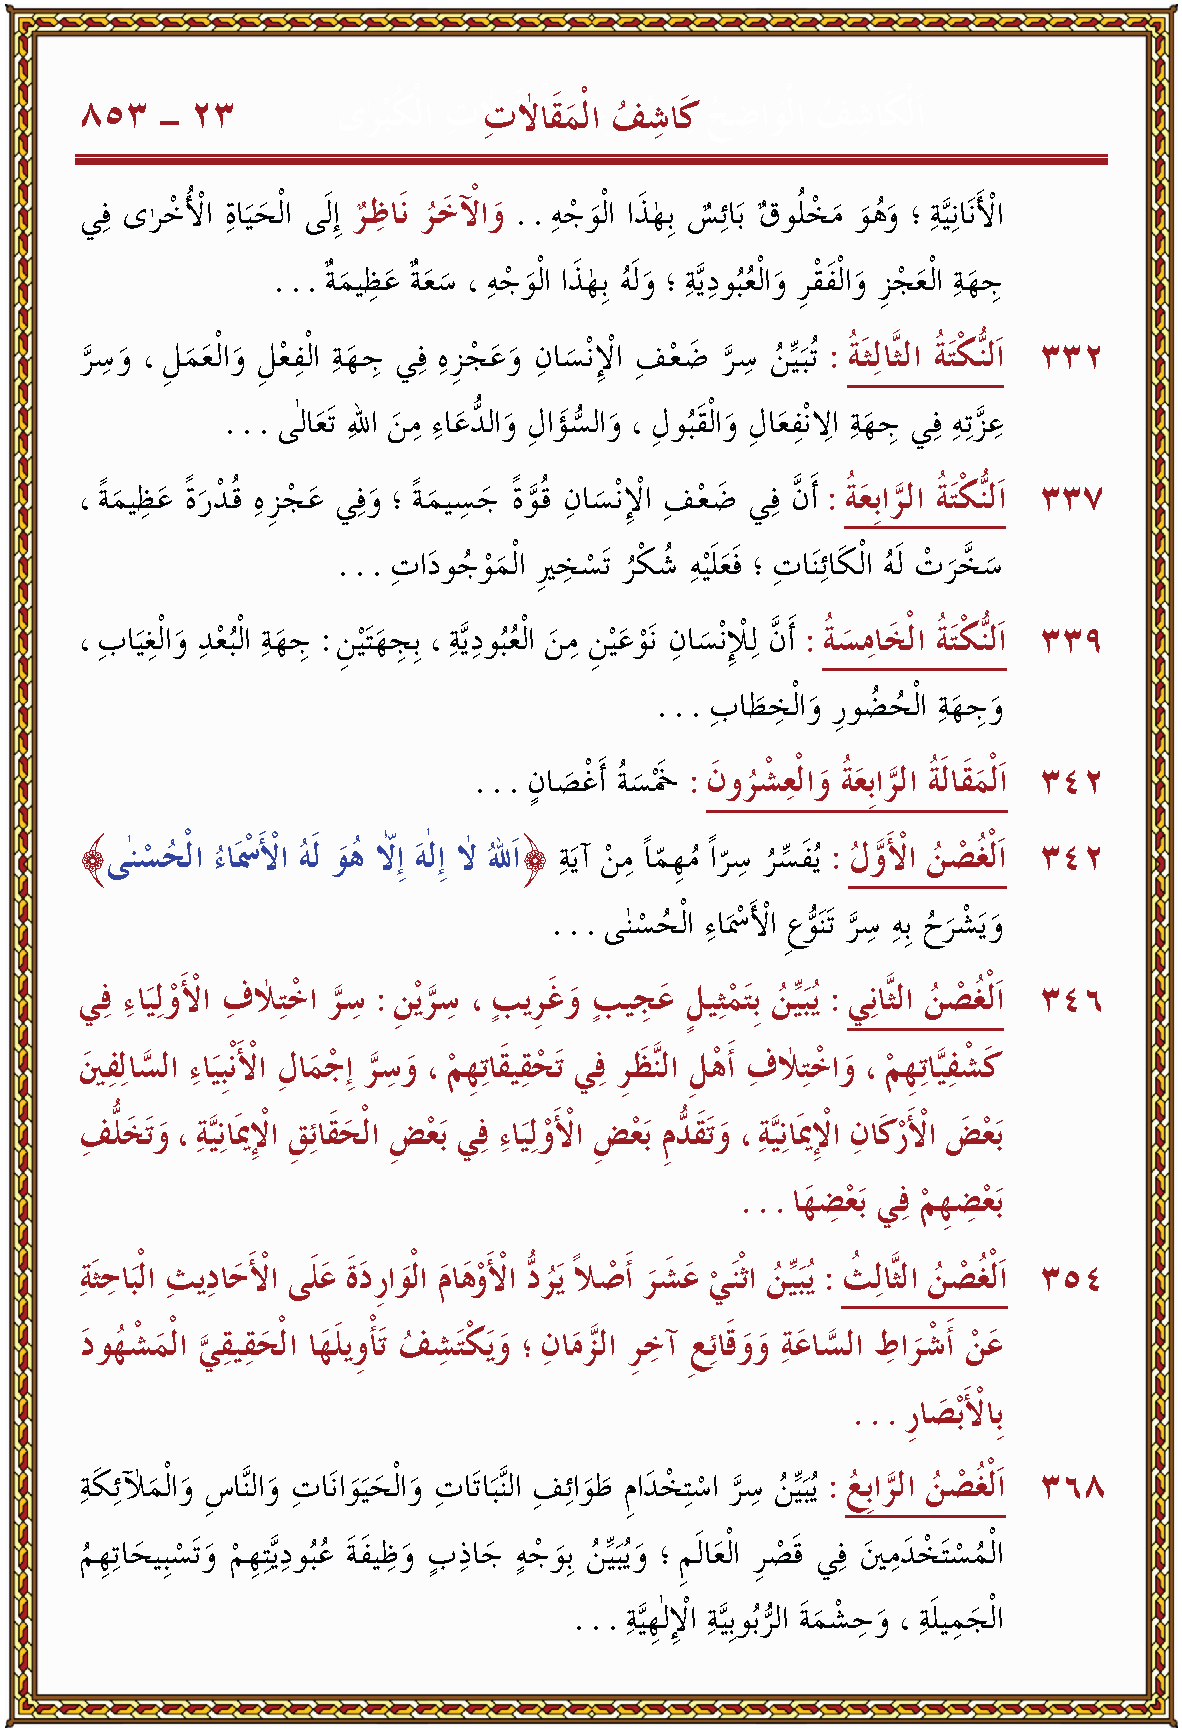 كَاشِفُ الْمَقَالَاتِ ٢٣ – ٨٥٣
الْأَنَانِيَّةِ ؛ وَهُوَ مَخْلُوقٌ بَائِسٌ بِهٰذَا الْوَجْهِ . . وَالْآخَرُ نَاظِرٌ إِلَى الْحَيَاةِ الْأُخْرٰى فِي
جِهَةِ الْعَجْزِ وَالْفَقْرِ وَالْعُبُودِيَّةِ ؛ وَلَهُ بِهٰذَا الْوَجْهِ ، سَعَةٌ عَظِيمَةٌ . . .
٣٣٢ اَلنُّكْتَةُ الثَّالِثَةُ : تُبَيِّنُ سِرَّ ضَعْفِ الْإِنْسَانِ وَعَجْزِهِ فِي جِهَةِ الْفِعْلِ وَالْعَمَلِ ، وَسِرَّ
عِزَّتِهِ فِي جِهَةِ الِانْفِعَالِ وَالْقَبُولِ ، وَالسُّؤَالِ وَالدُّعَاءِ مِنَ اللهِ تَعَالٰى . . .
٣٣٧ اَلنُّكْتَةُ الرَّابِعَةُ : أَنَّ فِي ضَعْفِ الْإِنْسَانِ قُوَّةً جَسِيمَةً ؛ وَفِي عَجْزِهِ قُدْرَةً عَظِيمَةً ،
سَخَّرَتْ لَهُ الْكَائِنَاتِ ؛ فَعَلَيْهِ شُكْرُ تَسْخِيرِ الْمَوْجُودَاتِ . . .
٣٣٩ اَلنُّكْتَةُ الْخَامِسَةُ : أَنَّ لِلْإِنْسَانِ نَوْعَيْنِ مِنَ الْعُبُودِيَّةِ ، بِجِهَتَيْنِ : جِهَةِ الْبُعْدِ وَالْغِيَابِ ،
وَجِهَةِ الْحُضُورِ وَالْخِطَابِ . . .
٣٤٢ اَلْمَقَالَةُ الرَّابِعَةُ وَالْعِشْرُونَ : خَمْسَةُ أَغْصَانٍ . . .
٣٤٢ اَلْغُصْنُ الْأَوَّلُ : يُفَسِّرُ سِرّاً مُهِمّاً مِنْ آيَةِ ﴿اَللهُ لَا إِلٰهَ إِلَّا هُوَ لَهُ الْأَسْمَاءُ الْحُسْنٰى﴾
وَيَشْرَحُ بِهِ سِرَّ تَنَوُّعِ الْأَسْمَاءِ الْحُسْنٰى . . .
٣٤٦ اَلْغُصْنُ الثَّانِي : يُبَيِّنُ بِتَمْثِيلٍ عَجِيبٍ وَغَرِيبٍ ، سِرَّيْنِ : سِرَّ اخْتِلَافِ الْأَوْلِيَاءِ فِي
كَشْفِيَّاتِهِمْ ، وَاخْتِلَافِ أَهْلِ النَّظَرِ فِي تَحْقِيقَاتِهِمْ ، وَسِرَّ إِجْمَالِ الْأَنْبِيَاءِ السَّالِفِينَ
بَعْضَ الْأَرْكَانِ الْإِيمَانِيَّةِ ، وَتَقَدُّمِ بَعْضِ الْأَوْلِيَاءِ فِي بَعْضِ الْحَقَائِقِ الْإِيمَانِيَّةِ ، وَتَخَلُّفِ
بَعْضِهِمْ فِي بَعْضِهَا . . .
٣٥٤ اَلْغُصْنُ الثَّالِثُ : يُبَيِّنُ اثْنَيْ عَشَرَ أَصْلاً يَرُدُّ الْأَوْهَامَ الْوَارِدَةَ عَلَى الْأَحَادِيثِ الْبَاحِثَةِ
عَنْ أَشْرَاطِ السَّاعَةِ وَوَقَائِعِ آخِرِ الزَّمَانِ ؛ وَيَكْتَشِفُ تَأْوِيلَهَا الْحَقِيقِيَّ الْمَشْهُودَ
بِالْأَبْصَارِ . . .
٣٦٨ اَلْغُصْنُ الرَّابِعُ : يُبَيِّنُ سِرَّ اسْتِخْدَامِ طَوَائِفِ النَّبَاتَاتِ وَالْحَيَوَانَاتِ وَالنَّاسِ وَالْمَلَآئِكَةِ
الْمُسْتَخْدَمِينَ فِي قَصْرِ الْعَالَمِ ؛ وَيُبَيِّنُ بِوَجْهٍ جَاذِبٍ وَظِيفَةَ عُبُودِيَّتِهِمْ وَتَسْبِيحَاتِهِمُ
الْجَمِيلَةِ ، وَحِشْمَةَ الرُّبُوبِيَّةِ الْإِلٰهِيَّةِ . . .